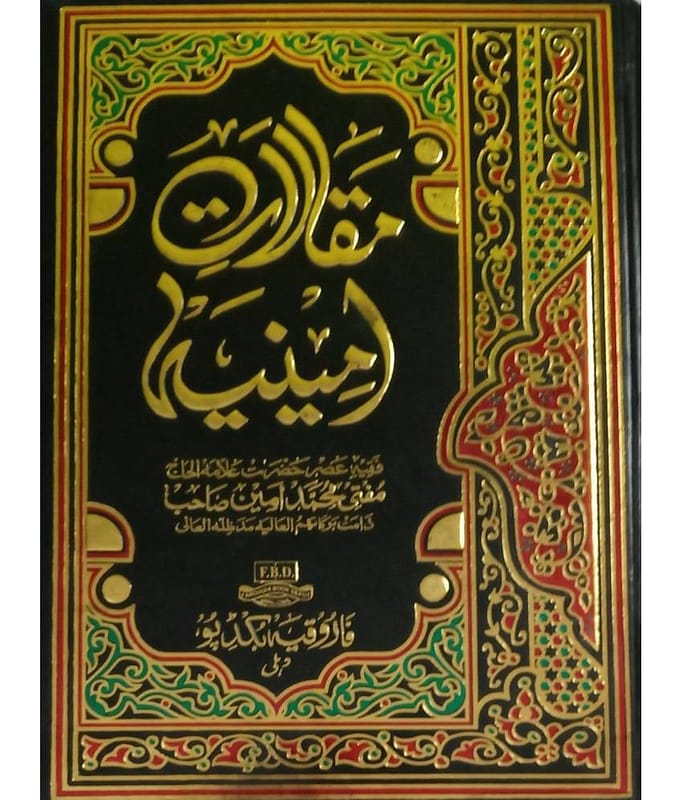 مقالات
امینیہ
فقیہ عصر حضرت علامہ الحاج
مفتی محمد امین صاحب
دامت برکاتہم العالیہ مدظلہ العالی
F.B.D.
فاروقیہ بکڈپو
دہلی